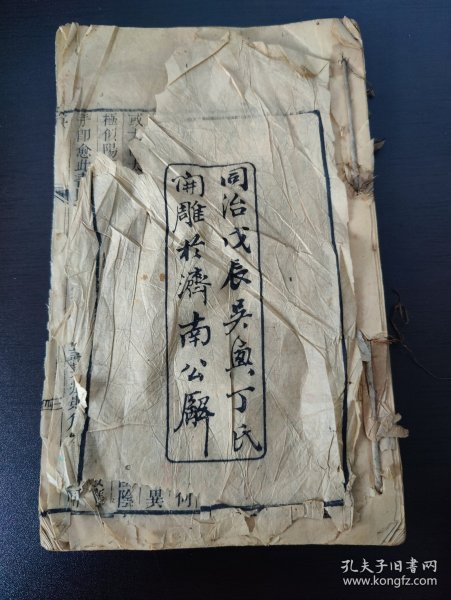 同治戊辰吳興丁氏
開雕於濟南公廨
極似陽
手即愈此
何異
孔夫子旧书网
www.kongfz.com